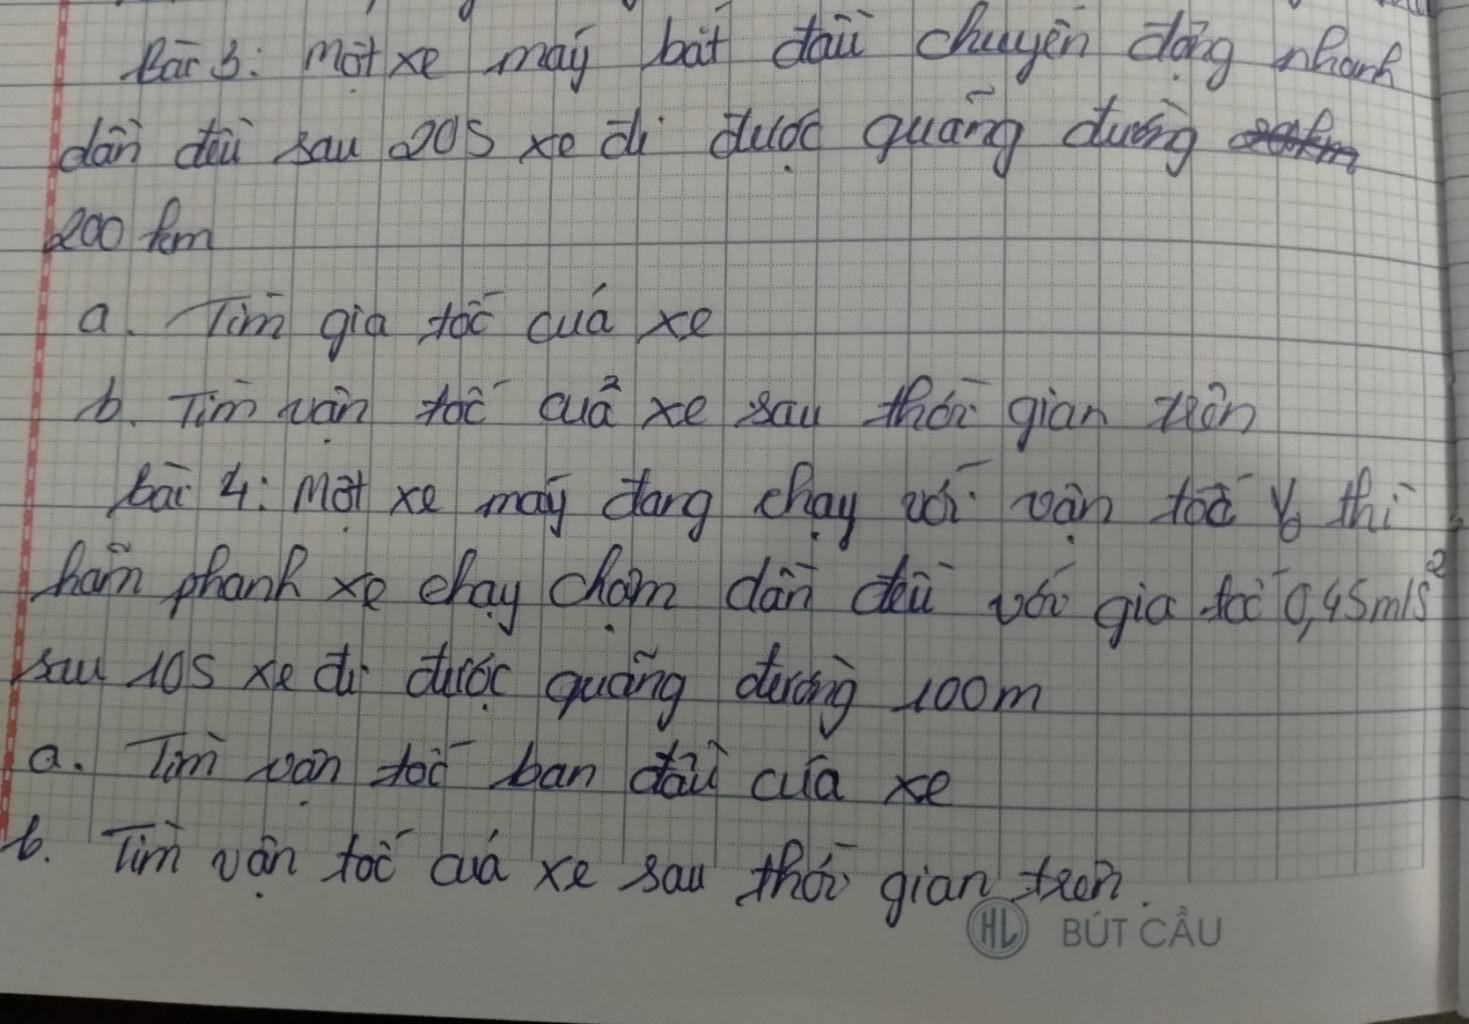 Bài 3: Một xe máy bắt đầu chuyển động nhanh
dần đều sau 20s xe đi được quãng đường
200 km
a. Tìm gia tốc của xe
b. Tìm vận tốc của xe sau thời gian trên
bài 4: Một xe máy đang chạy với vận tốc V₀ thì
hãm phanh xe chạy chậm dần đều với gia tốc 0,45m/s²
sau 10s xe đi được quãng đường 100m
a. Tìm vận tốc ban đầu của xe
b. Tìm vận tốc của xe sau thời gian trên.
HL BÚT CẦU